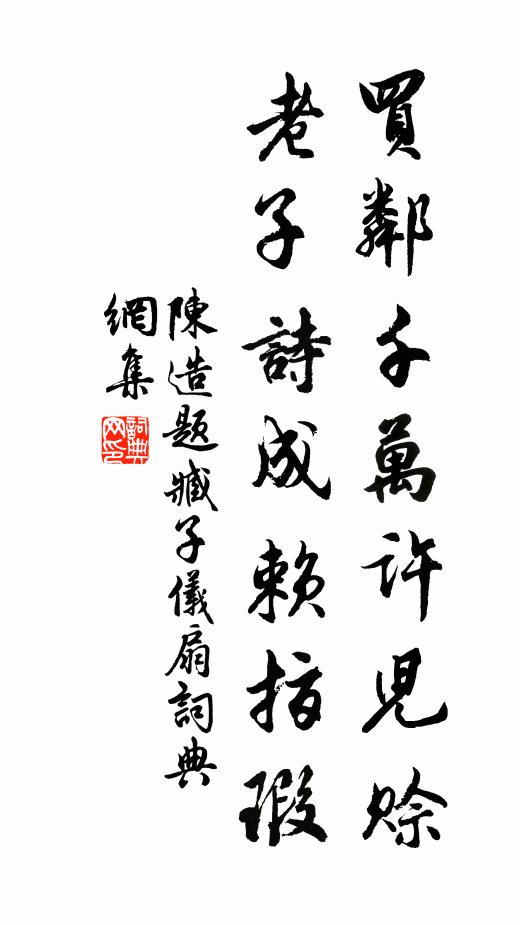 買鄰千萬許兒賒
老子詩成賴指瑕
陳造題臧子儀扇詞典
網集
詞典网印